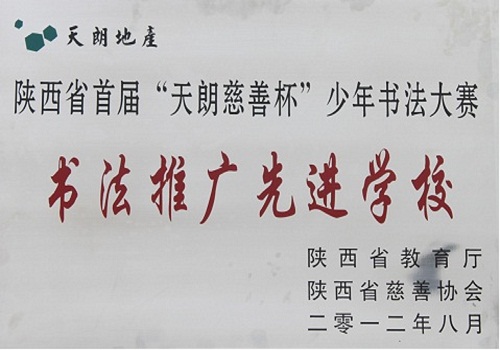 天朗地產
陕西省首届“天朗慈善杯”少年书法大赛
书法推广先进学校
陕西省教育厅
陕西省慈善协会
二零一二年八月